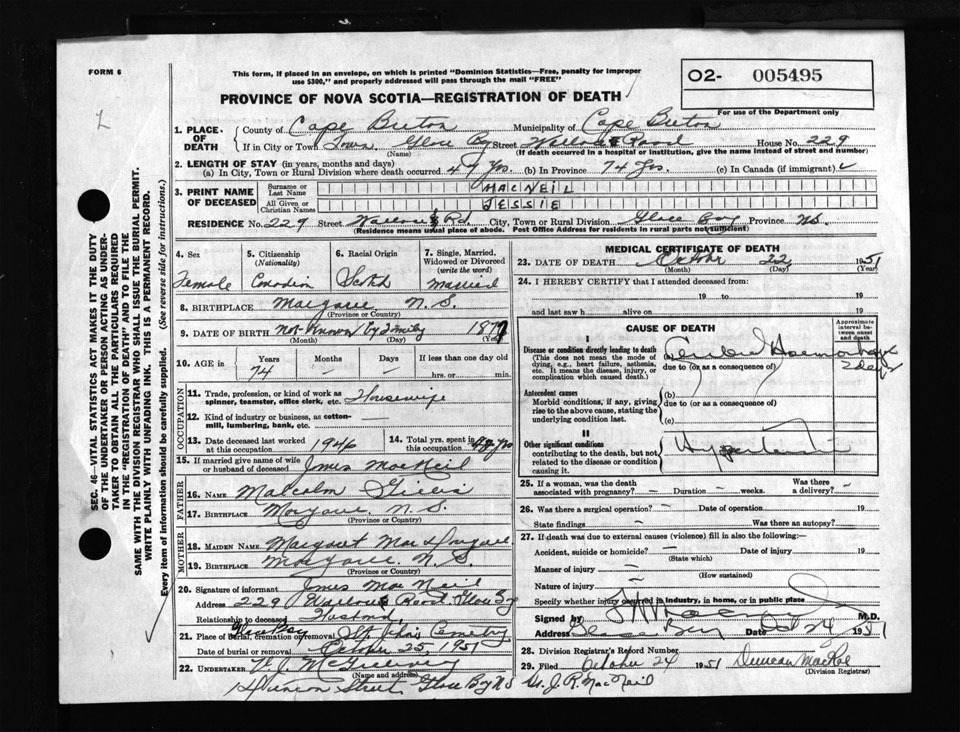 FORM 6
This form, if placed in an envelope, on which is printed "Dominion Statistics—Free, penalty for improper
use $300," and properly addressed will pass through the mail "FREE"
PROVINCE OF NOVA SCOTIA—REGISTRATION OF DEATH
O2- 005495
For use of the Department only
SEC. 46—VITAL STATISTICS ACT MAKES IT THE DUTY
OF THE UNDERTAKER OR PERSON ACTING AS UNDER-
TAKER TO OBTAIN ALL THE PARTICULARS REQUIRED
IN THE "REGISTRATION OF DEATH" AND TO FILE THE
SAME WITH THE DIVISION REGISTRAR WHO SHALL ISSUE THE BURIAL PERMIT.
WRITE PLAINLY WITH UNFADING INK. THIS IS A PERMANENT RECORD.
Every item of information should be carefully supplied. (See reverse side for instructions.)
1. PLACE OF DEATH County of Cape Breton Municipality of Cape Breton
If in City or Town Town Glace Bay Street Road House No. 229
(Name) (If death occurred in a hospital or institution, give the name instead of street and number)
2. LENGTH OF STAY (in years, months and days)
(a) In City, Town or Rural Division where death occurred 49 Yrs. (b) In Province 74 Yrs. (c) In Canada (if immigrant)
3. PRINT NAME OF DECEASED Surname or Last Name MACNEIL
All Given or Christian Names JESSIE
RESIDENCE No. 229 Street Rd. City, Town or Rural Division Glace Bay Province N.S.
(Residence means usual place of abode. Post Office Address for residents in rural parts not sufficient)
4. Sex Female
5. Citizenship (Nationality) Canadian
6. Racial Origin Scotch
7. Single, Married, Widowed or Divorced (write the word) Married
8. BIRTHPLACE Margaree N.S.
(Province or Country)
9. DATE OF BIRTH Not Known by family 1877
(Month) (Day) (Year)
10. AGE in Years 74 Months — Days — If less than one day old hrs. or min.
OCCUPATION
11. Trade, profession, or kind of work as spinner, teamster, office clerk, etc. Housewife
12. Kind of industry or business, as cotton-mill, lumbering, bank, etc.
13. Date deceased last worked at this occupation 1946
14. Total yrs. spent in this occupation 48 yrs
15. If married give name of wife or husband of deceased James MacNeil
FATHER
16. Name Malcolm Gillis
17. Birthplace Margaree N.S.
(Province or Country)
MOTHER
18. Maiden Name Margaret MacDougall
19. Birthplace Margaree N.S.
(Province or Country)
20. Signature of informant James MacNeil
Address 229 Road Glace Bay
Relationship to deceased Husband
21. Place of burial, cremation or removal Glace Bay St. John's Cemetery
Date of burial or removal October 25, 1951
22. UNDERTAKER V. J. McGillivray
(Name and address)
14 Union Street Glace Bay N S
MEDICAL CERTIFICATE OF DEATH
23. DATE OF DEATH October 22 1951
(Month) (Day) (Year)
24. I HEREBY CERTIFY that I attended deceased from:
19 to 19
and last saw h alive on 19
CAUSE OF DEATH
Approximate interval between onset and death
I
Disease or condition directly leading to death
(This does not mean the mode of dying, e.g., heart failure, asthenia, etc. It means the disease, injury, or complication which caused death.)
(a) Cerebral Haemorrhage 2 days
due to (or as a consequence of)
Antecedent causes
Morbid conditions, if any, giving rise to the above cause, stating the underlying condition last.
(b)
due to (or as a consequence of)
(c)
II
Other significant conditions contributing to the death, but not related to the disease or condition causing it.
Hypertension
25. If a woman, was the death associated with pregnancy? — Duration — weeks. Was there a delivery? —
26. Was there a surgical operation? — Date of operation 19
State findings — Was there an autopsy?
27. If death was due to external causes (violence) fill in also the following:—
Accident, suicide or homicide? — Date of injury 19
(State which)
Manner of injury —
(How sustained)
Nature of injury —
Specify whether injury occurred in industry, in home, or in public place
Signed by M.D.
Address Glace Bay Date Oct 24 1951
28. Division Registrar's Record Number
29. Filed October 24 1951 Duncan MacRae
(Division Registrar)
J. R. MacNeil